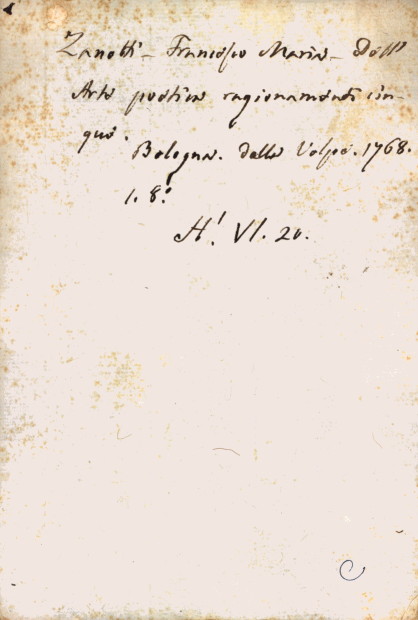 Zanotti - Francesco Maria - Dell'
Arte poetica ragionamenti cin-
que.
Bologna. dalla Volpe. 1768.
1. 8º.
H! VI. 20.